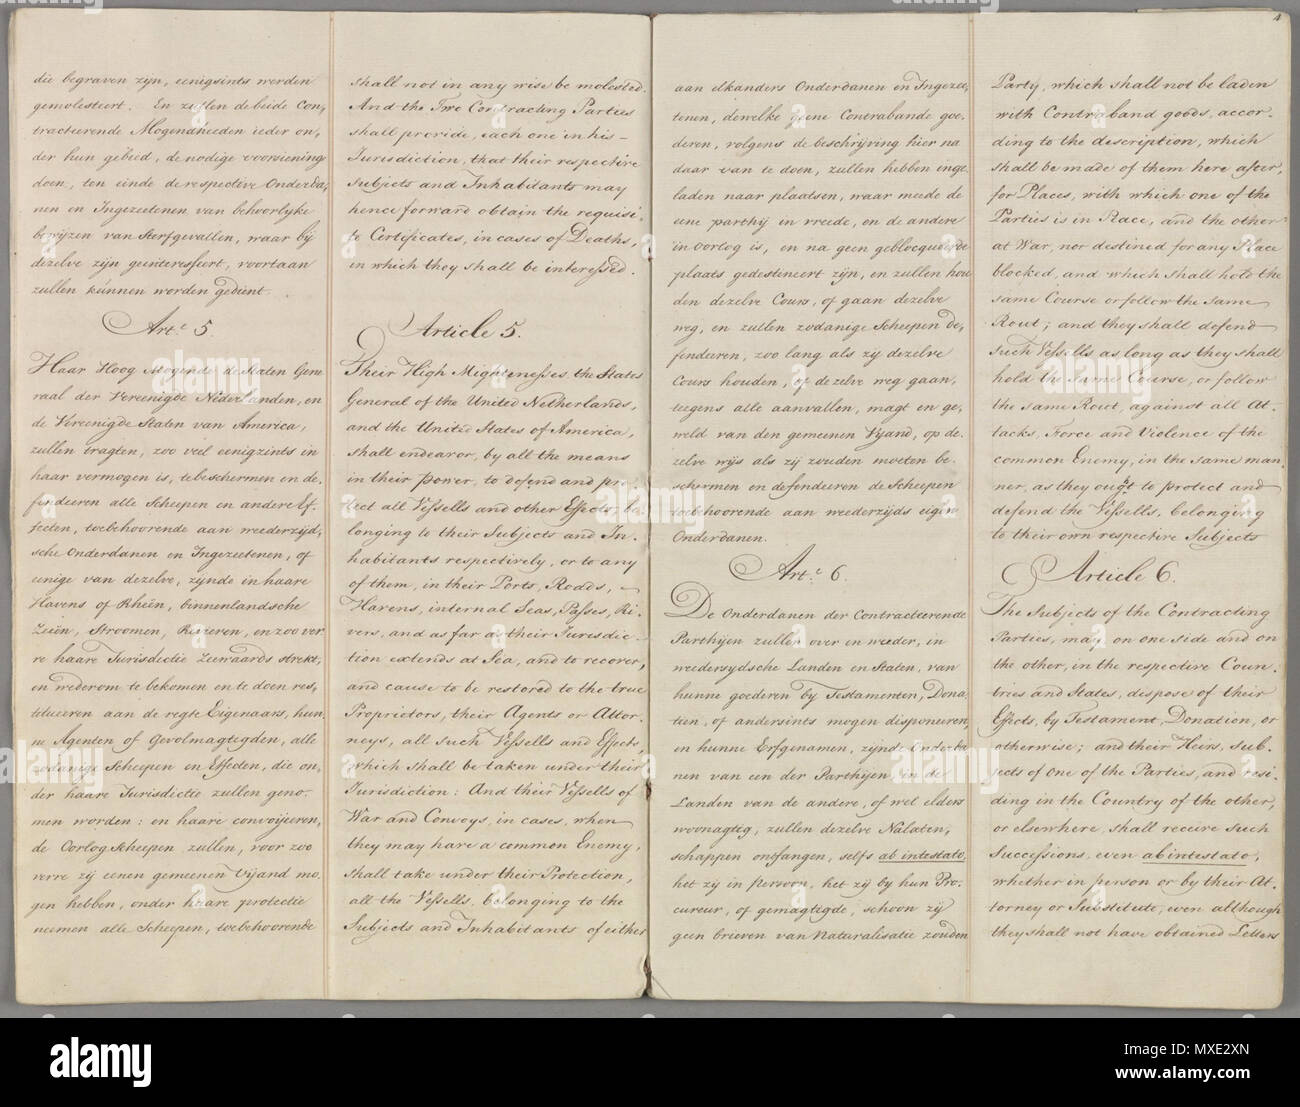 die begraven zijn, eenigsints werden
gemolesteert. En zullen de beide Con,
tracteerende Mogendheeden ieder on,
der hun gebied, de nodige voorsieninge
doen, ten einde de respective Onderda,
nen en Ingezeetenen van behoorlyke
bewijzen van Sterfgevallen, waar bij
dezelve zijn geinteresseert, voortaan
zullen kunnen worden gedient.
Art.e 5.
Haar Hoog Mogende de Staten Gene
raal der Vereenigde Nederlanden, en
de Vereenigde Staten van America,
zullen tragten, zoo veel eenigzints in
haar vermogen is, te beschermen en de,
fendeeren alle Scheepen en andere Ef
fecten, toebehoorende aan weederzijd,
sche Onderdanen en Ingezeetenen, of
eenige van dezelve, zijnde in haare
Havens of Rheën, binnenlandsche
Zeeën, Stroomen, Rivieren, en zoo ver
re haare Jurisdictie zeewaards strekt,
en wederom te bekomen en te doen res,
titueeren aan de regte Eigenaars, hun,
ne Agenten of Gevolmagtigden, alle
zodanige Scheepen en Effecten, die on,
der haare Jurisdictie zullen geno-
men worden: en haare convoijeeren,
de Oorlog Scheepen zullen, voor zoo
verre zij eenen gemeenen Vijand mo,
gen hebben, onder haare protectie
neemen alle Scheepen, toebehoorende
shall not in any wise be molested.
And the Two Contracting Parties
shall provide, each one in his
Jurisdiction, that their respective
Subjects and Inhabitants may
hence forward obtain the requisi,
te Certificates, in cases of Deaths,
in which they shall be interessed.
Article 5.
Their High Mightenesses the States
General of the United Netherlands,
and the United States of America,
shall endeavor, by all the means
in their power, to defend and pro
tect all Vessells and other Effects, be
longing to their Subjects and In,
habitants respectively, or to any
of them, in their Ports, Roads,
Havens, internal Seas, Passes, Ri,
vers, and as far as their Jurisdic
tion extends at Sea, and to recover,
and cause to be restored to the true
Proprietors, their Agents or Attor
neys, all such Vessells and Effects,
which shall be taken under their
Jurisdiction: And their Vessells of
War and Convoys, in cases, when
they may have a common Enemy,
shall take under their Protection,
all the Vessells, belonging to the
Subjects and Inhabitants of either
aan elkanders Onderdanen en Ingezee,
tenen, dewelke geene Contrabande goe,
deren, volgens de beschrijving hier na
daar van te doen, zullen hebben inge
laden naar plaatsen, waar meede de
eene parthij in vreede, en de andere
in oorlog is, en na geen geblocqueerde
plaats gedestineert zijn, en zullen hou
den dezelve Cours, of gaan dezelve
weg, en zullen zodanige Scheepen de,
fendeeren, zoo lang als zij dezelve
Cours houden, of dezelve weg gaan,
teegens alle aanvallen, magt en ge,
weld van den gemeenen Vijand, op de,
zelve wijs als zij zouden moeten be,
schermen en defendeeren de Scheepen
toebehoorende aan weederzijds eigen
Onderdanen.
Art.e 6.
De Onderdanen der Contracteerende
Parthijen zullen over en weeder, in
weedersydsche Landen en Staten, van
hunne goederen by Testamenten, Dona
tien, of andersints mogen disponeeren,
en hunne Erfgenamen, zijnde onderda
nen van een der Parthijen, in de
Landen van de andere, of wel elders
woonagtig, zullen dezelve Nalaten,
schappen ontfangen, selfs ab intestato,
het zij in persoon, het zij by hun Pro,
cureur, of gemagtigde, schoon zij
geen brieven van Naturalisatie zouden
4
Party, which shall not be laden
with Contraband goods, accor,
ding to the description, which
shall be made of them here after,
for Places, with which one of the
Parties is in Peace, and the other
at War, nor destined for any Place
blocked, and which shall hold the
same Course or follow the same
Rout; and they shall defend
such Vessells as long as they shall
hold the same Course, or follow
the same Rout, against all At,
tacks, Force and Violence of the
common Enemy, in the same man,
ner, as they ought to protect and
defend the Vessells, belonging
to their own respective Subjects
Article 6.
The Subjects of the Contracting
Parties, may, on one side and on
the other, in the respective Coun,
tries and States, dispose of their
Effects, by Testament, Donation, or
otherwise; and their Heirs, Sub,
jects of one of the Parties, and resi,
ding in the Country of the other,
or elsewhere, shall receive such
Successions, even ab intestato,
whether in person or by their At,
torney or Substitute, even although
they shall not have obtained Letters
alamy
Image ID: MXE2XN
www.alamy.com